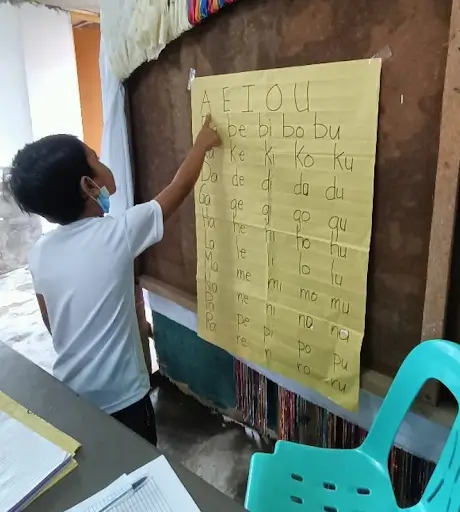 A E I O U
be bi bo bu
ke ki ko ku
Da de di do du
Ga ge gi go gu
Ha he hi ho hu
La le li lo lu
Ma me mi mo mu
Na ne ni no
Pa pe pi po pu
Ra re ri ro ru